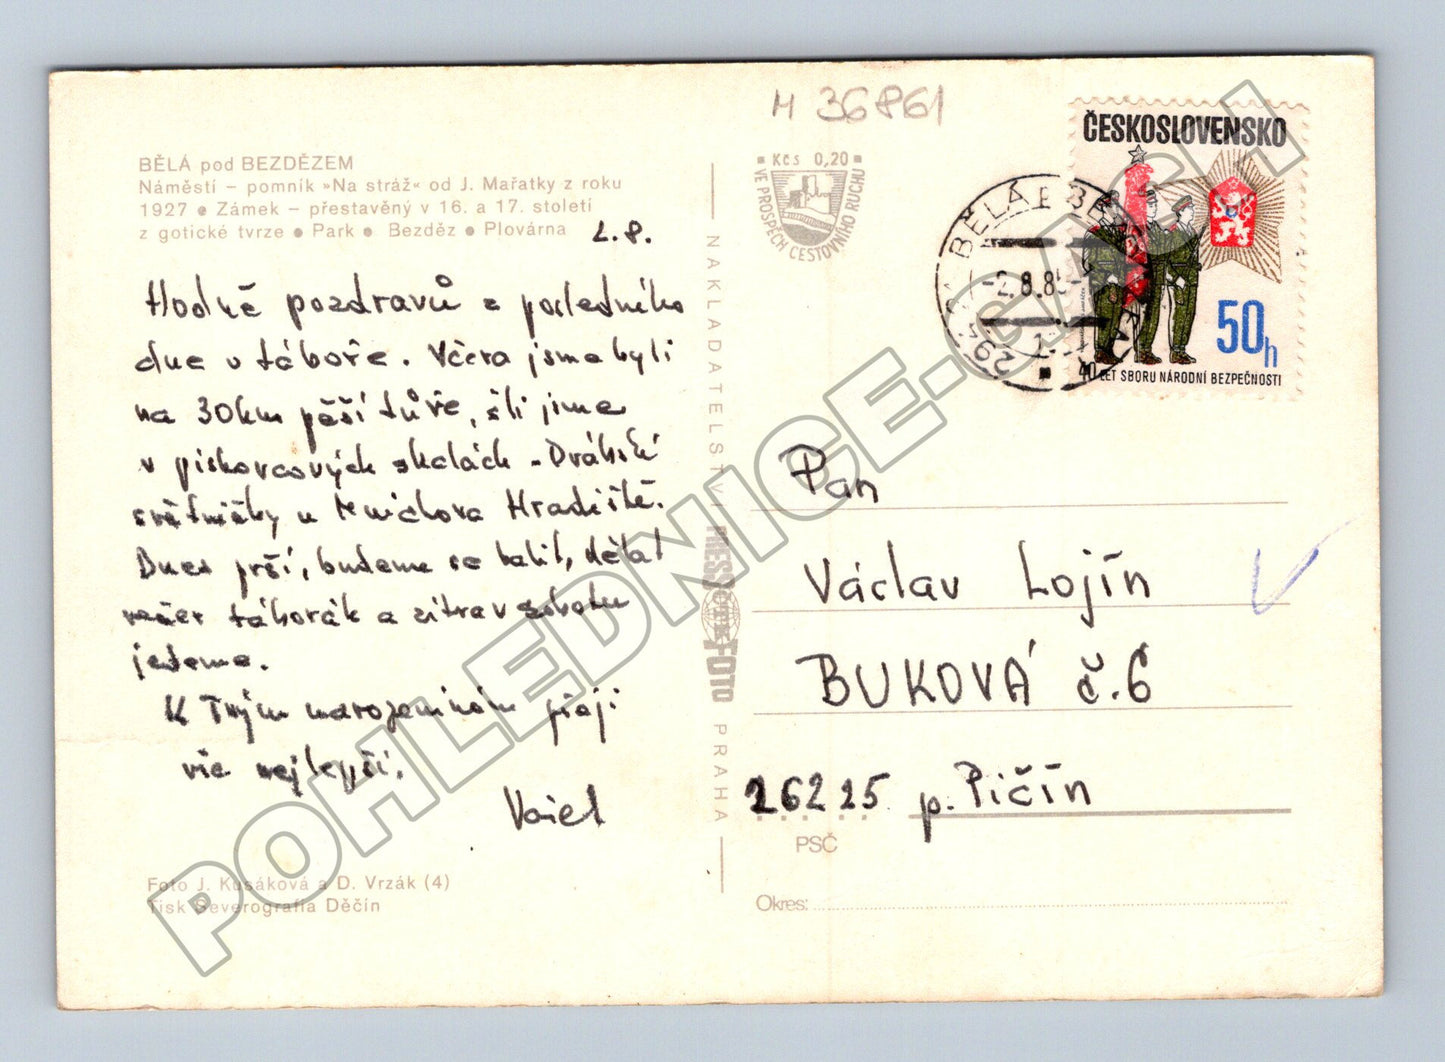 H 36861
BĚLÁ pod BEZDĚZEM
Náměstí – pomník »Na stráž« od J. Mařatky z roku
1927 ● Zámek – přestavěný v 16. a 17. století
z gotické tvrze ● Park ● Bezděz ● Plovárna
2.8.
Hodně pozdravů z posledního
dne v táboře. Včera jsme byli
na 30km pěší túře, šli jsme
v pískovcových skalách - Drábské
světničky u Mnichova Hradiště.
Dnes prší, budeme se balit, dělat
večer táborák a zítra v sobotu
jedeme.
K Tvým narozeninám přeji
vše nejlepší.
Foto J. Kusáková a D. Vrzák (4)
Tisk Severografia Děčín
NAKLADATELSTVÍ PRESSFOTO PRAHA
ČTK
Kčs 0,20
VE PROSPĚCH CESTOVNÍHO RUCHU
ČESKOSLOVENSKO
50h
40 LET SBORU NÁRODNÍ BEZPEČNOSTI
BĚLÁ P. BEZDĚZEM
-2.8.85-
294 21
Pan
Václav Lojín
BUKOVÁ č.6
26225 p. Pičín
PSČ
Okres:
POHLEDNICE-CACH